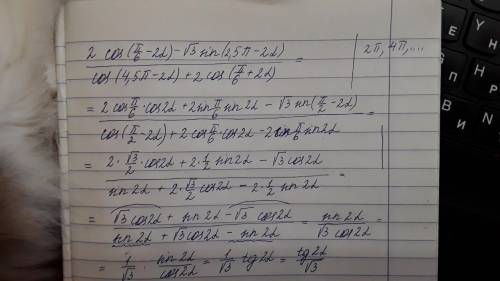 2 cos(π/6 - 2α) - √3 sin(2,5π - 2α) / cos(4,5π - 2α) + 2 cos(π/6 + 2α) = | 2π, 4π, ...
= 2 cos π/6 · cos2α + 2 sin π/6 sin 2α - √3 sin(π/2 - 2α) / cos(π/2 - 2α) + 2 cos π/6 cos2α - 2 sin π/6 sin2α =
= 2 · √3/2 · cos2α + 2 · 1/2 sin2α - √3 cos2α / sin2α + 2 · √3/2 cos2α - 2 · 1/2 sin2α =
= √3 cos2α + sin 2α - √3 cos2α / sin 2α + √3 cos2α - sin 2α = sin2α / √3 cos2α =
= 1/√3 · sin2α / cos2α = 1/√3 tg2α = tg2α / √3